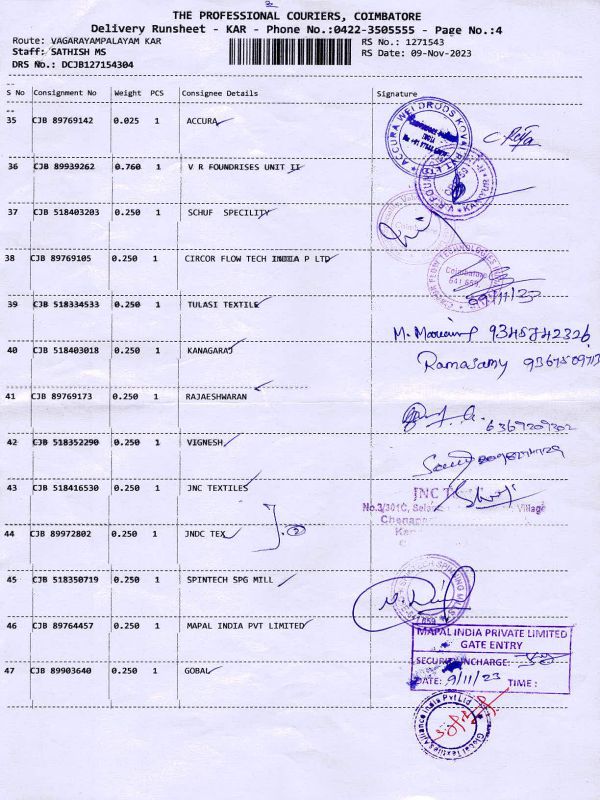 2
THE PROFESSIONAL COURIERS, COIMBATORE
Delivery Runsheet - KAR - Phone No.:0422-3505555 - Page No.:4
Route: VAGARAYAMPALAYAM KAR
RS No.: 1271543
Staff: SATHISH MS
RS Date: 09-Nov-2023
DRS No.: DCJB127154304
S No Consignment No Weight PCS Consignee Details Signature
35 CJB 89769142 0.025 1 ACCURA
36 CJB 89939262 0.760 1 V R FOUNDRISES UNIT II
37 CJB 518403203 0.250 1 SCHUF SPECILITY
38 CJB 89769105 0.250 1 CIRCOR FLOW TECH INDIA P LTD
Coimbatore
641 659
09/11/23
39 CJB 518334533 0.250 1 TULASI TEXTILE
M. 9345842326
40 CJB 518403018 0.250 1 KANAGARAJ
Ramasamy
41 CJB 89769173 0.250 1 RAJAESHWARAN
6369209302
42 CJB 518352290 0.250 1 VIGNESH
43 CJB 518416530 0.250 1 JNC TEXTILES
JNC
No.3/301C, Village
44 CJB 89972802 0.250 1 JNDC TEX
2
45 CJB 518350719 0.250 1 SPINTECH SPG MILL
46 CJB 89764457 0.250 1 MAPAL INDIA PVT LIMITED
MAPAL INDIA PRIVATE LIMITED
GATE ENTRY
SECURITY INCHARGE:
DATE: 9/11/23 TIME :
47 CJB 89903640 0.250 1 GOBAL
Global Textiles Alliance India Pvt Ltd